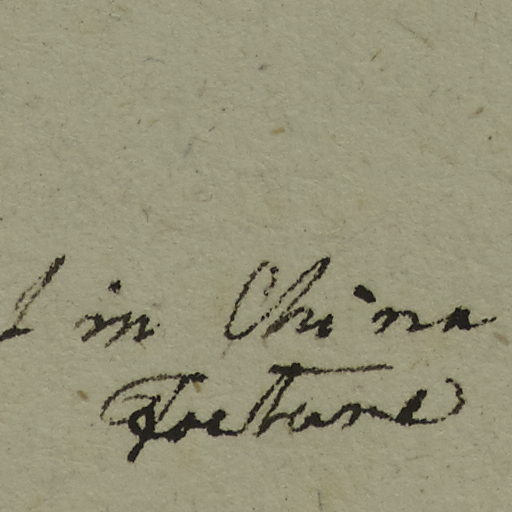 l in China
Fortune